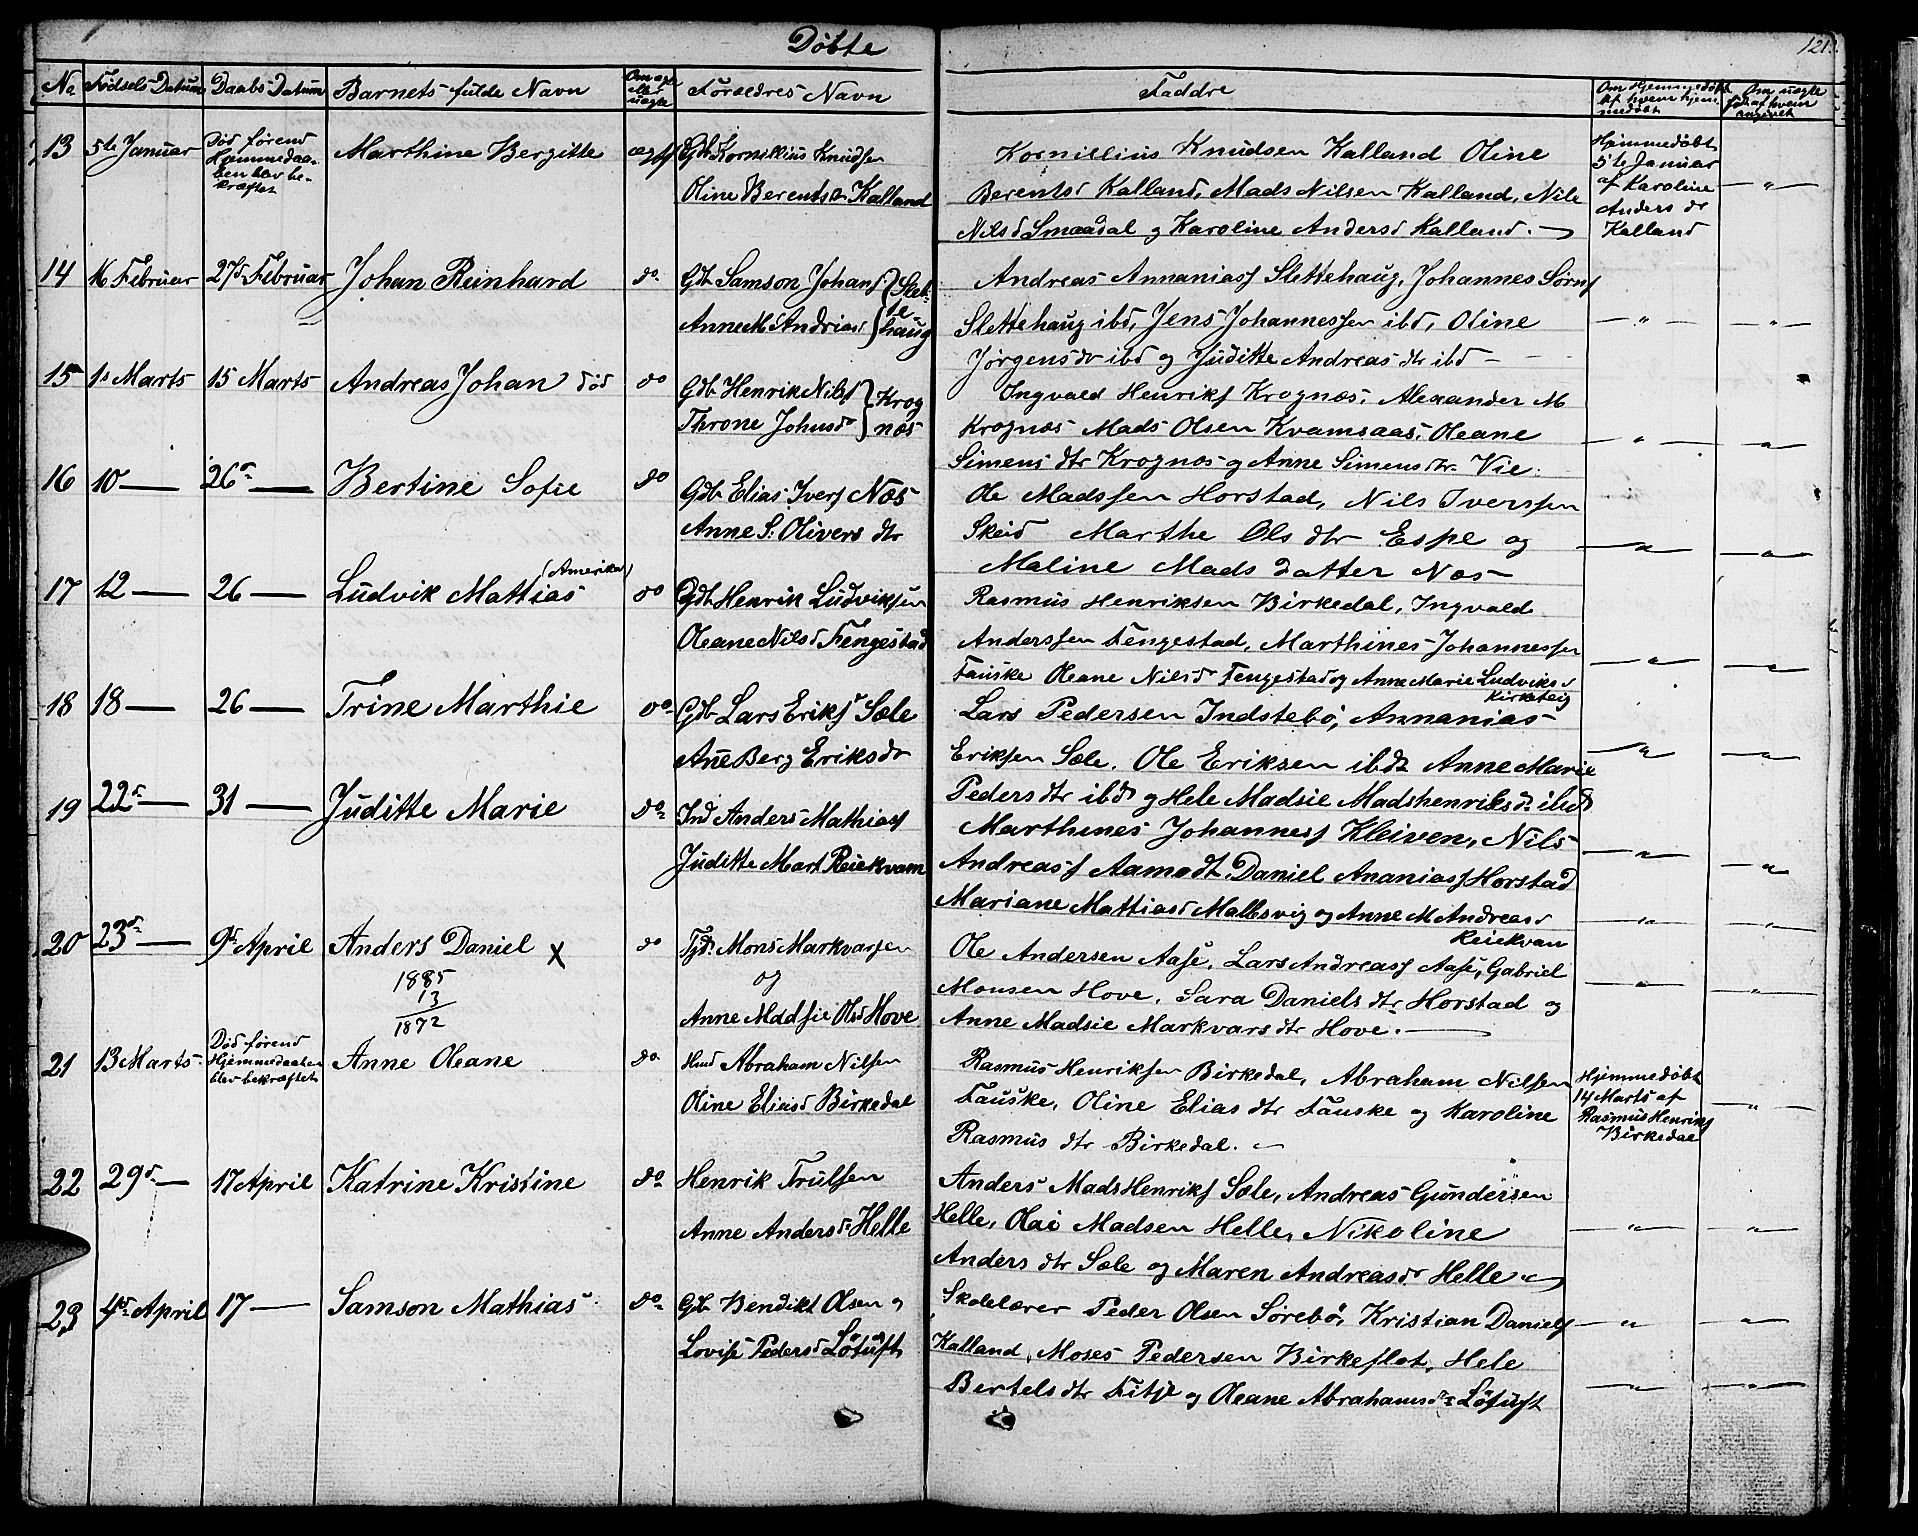 Döbte
121.
No Födsels-Datum Daabs-Datum Barnets fulde Navn Om ægte eller uægte Forældres Navn Faddre Om Hjemmedøbt af hvem hjemmedøbt Om uægte
13 5te Januar Död förend Hjemmedaaben blev bekræftet Marthine Bergitte ægtf Gdb Kornillius Knudsen
Oline Berentsdr Kalland
Kornillius Knudsen Kalland Oline
Berentsd Kalland, Mads Nilsen Kalland, Nile
Nilsd Smaadal og Karoline Andersd Kalland.
Hjemmedøbt
5te Januar
af Karoline
Anders dr
Kalland
14 16 Februar 27d Februar Johan Reinhard do. Gdb Samson Johans
Anne M Andriasd
Slettehaug
Andreas Annaniasf Slettehaug, Johannes Sörnf
Slettehaug ibd, Jens Johannessen ibd, Oline
Jörgensdr ibd og Juditte Andreas dtr ibd
15 1s Marts 15 Marts Andreas Johan död do Gdb Henrik Nilsf
Throne Johnsdr
Krognæs
Ingvald Henrikf Krognæs, Alexander M
Krognæs Mads Olsen Kvamsaas, Oleane
Simens dtr Krognæs og Anne Simensdtr Vie.
16 10 — 26d — Bertine Sofie do Gdb Elias Iverf Næs
Anne S. Olivers dtr
Ole Madssen Horstad, Nils Iverssen
Skeid Marthe Ols dtr Espe og
Maline Mads datter Næs
17 12 — 26 — Ludvik Mattias (Amerika) do Gdb Henrik Ludviksen
Oleane Nilsd Fengestad
Rasmus Henriksen Birkedal, Ingvald
Anderssen Fengestad, Marthines Johannessen
Fauske Oleane Nilsd Fengestad og Anne Marie Ludviksd
Kirketeig
18 18 — 26 — Trine Marthie do Gdb Lars Eriksf Sæle
Ane Berg Eriksdr
Lars Pedersen Indstebö, Annanias
Eriksen Sæle. Ole Eriksen ibdt Anne Marie
Peders dtr ibd og Hele Madsie Madshenriksdr ibd
19 22d — 31 — Juditte Marie do Ind Anders Mathiasf
Juditte Mart Reiekvam
Marthines Johannesf Kleiven, Nils
Andreasf Aamodt, Daniel Ananiasf Horstad
Mariane Mattiasd Mallesvig og Anne M Andreasd
Reiekvam
20 23d — 9d April Anders Daniel x do Mons Markvarsen
og
Anne Madsie Olsd Hove
1885
13
1872
Ole Andersen Aase, Lars Andreasf Aase, Gabriel
Monsen Hove, Sara Daniels dtr Horstad og
Anne Madsie Markvars dtr Hove.
21 13 Marts Död förend Hjemmedaaben blev bekræftet Anne Oleane do. Hmd Abraham Nilsen
Oline Eliasd Birkedal
Rasmus Henriksen Birkedal, Abraham Nilsen
Fauske, Oline Elias dtr Fauske og Karoline
Rasmus dtr Birkedal.
Hjemmedöbt
14 Marts af
Rasmus Henrikf
Birkedal
22 29d — 17 April Katrine Kristine do. Henrik Trulsen
Anne Andersdr Helle
Anders Mads Henrikf Sæle, Andreas Gundersen
Helle, Olai Madsen Helle, Nikoline
Anders dtr Sæle og Maren Andreasdr Helle
23 4de April 17 — Samson Mathias do. Gdb Bendikt Olsen og
Lovise Pedersd Lötuft
Skolelærer Peder Olsen Sörebö, Kristian Danielf
Kalland, Moses Pedersen Birkeflot, Hele
Bertels dtr Fitje og Oleane Abrahamsdr Lötuft